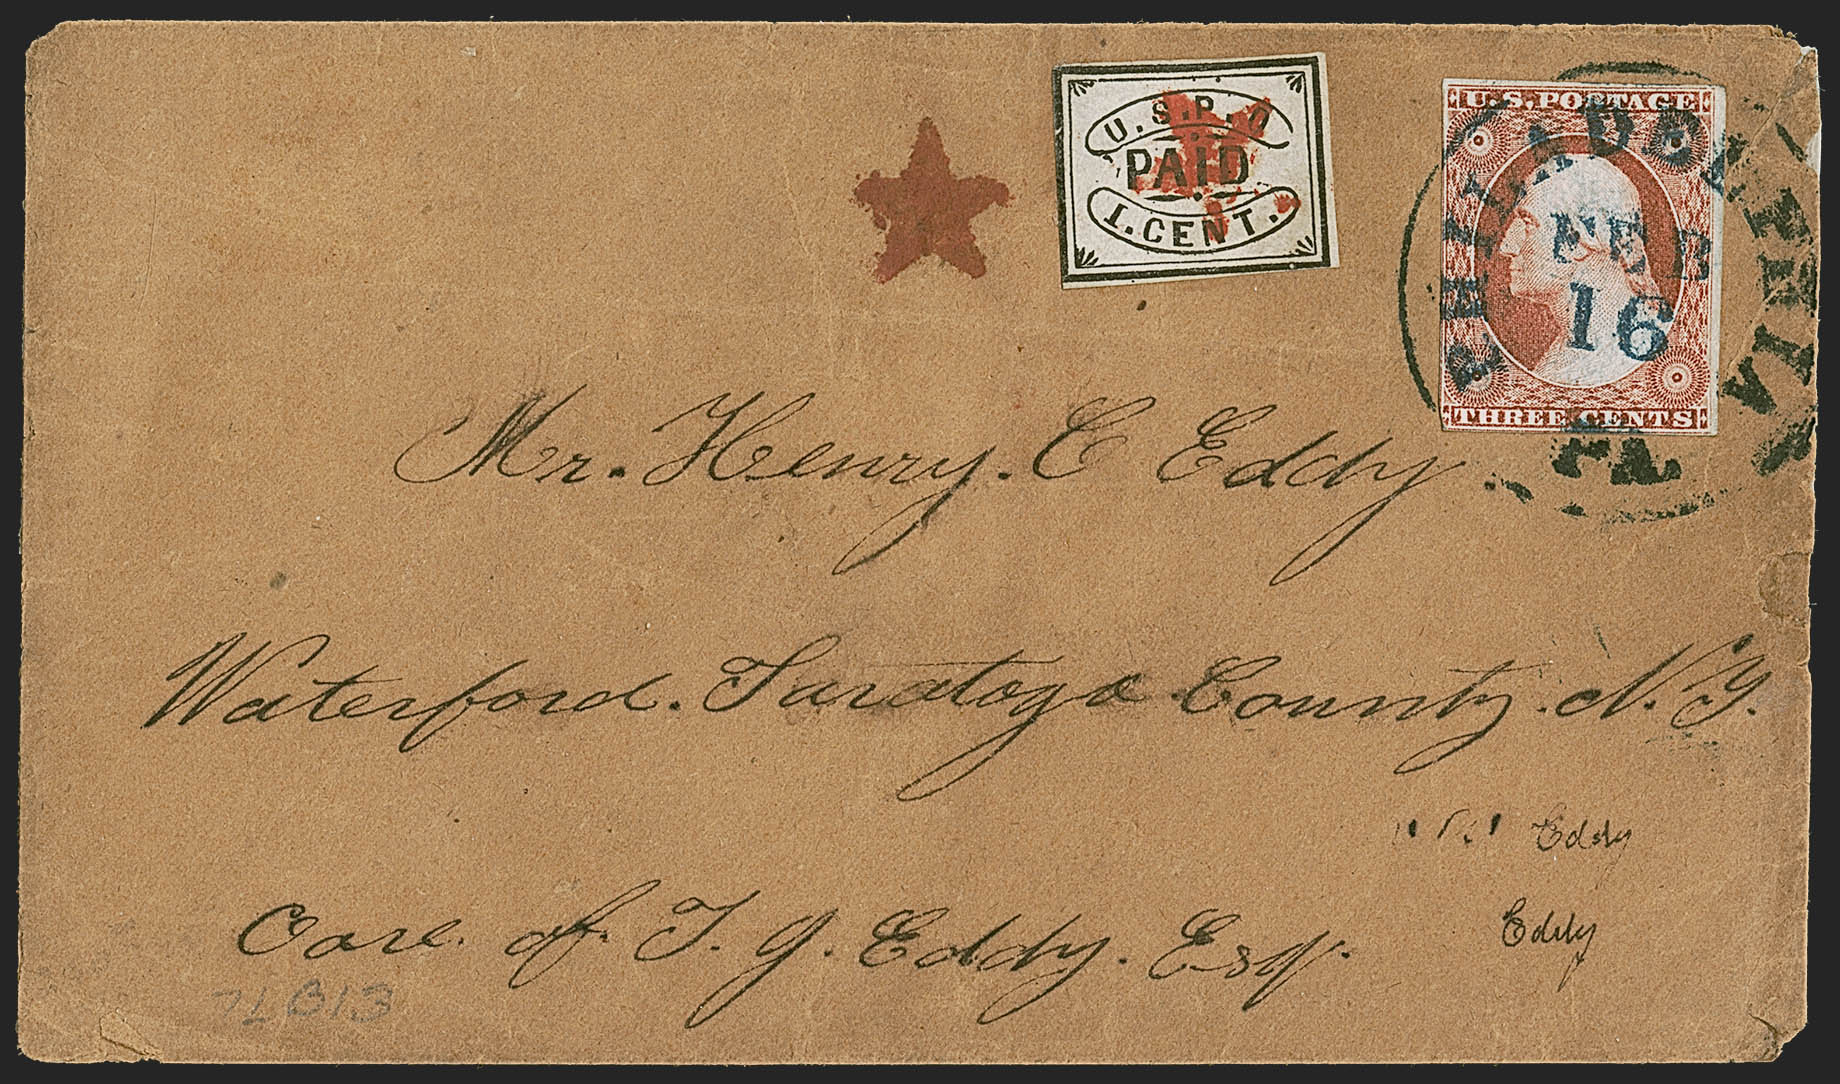 U.S.P.O
PAID
1.CENT.
U.S. POSTAGE
THREE CENTS
PHILADELPHIA
FEB
16
PA.
Mr. Henry. C Eddy.
Waterford. Saratoga County. N.Y.
Care. of. T. G. Eddy. Esqr.
Eddy
Eddy
7LB13